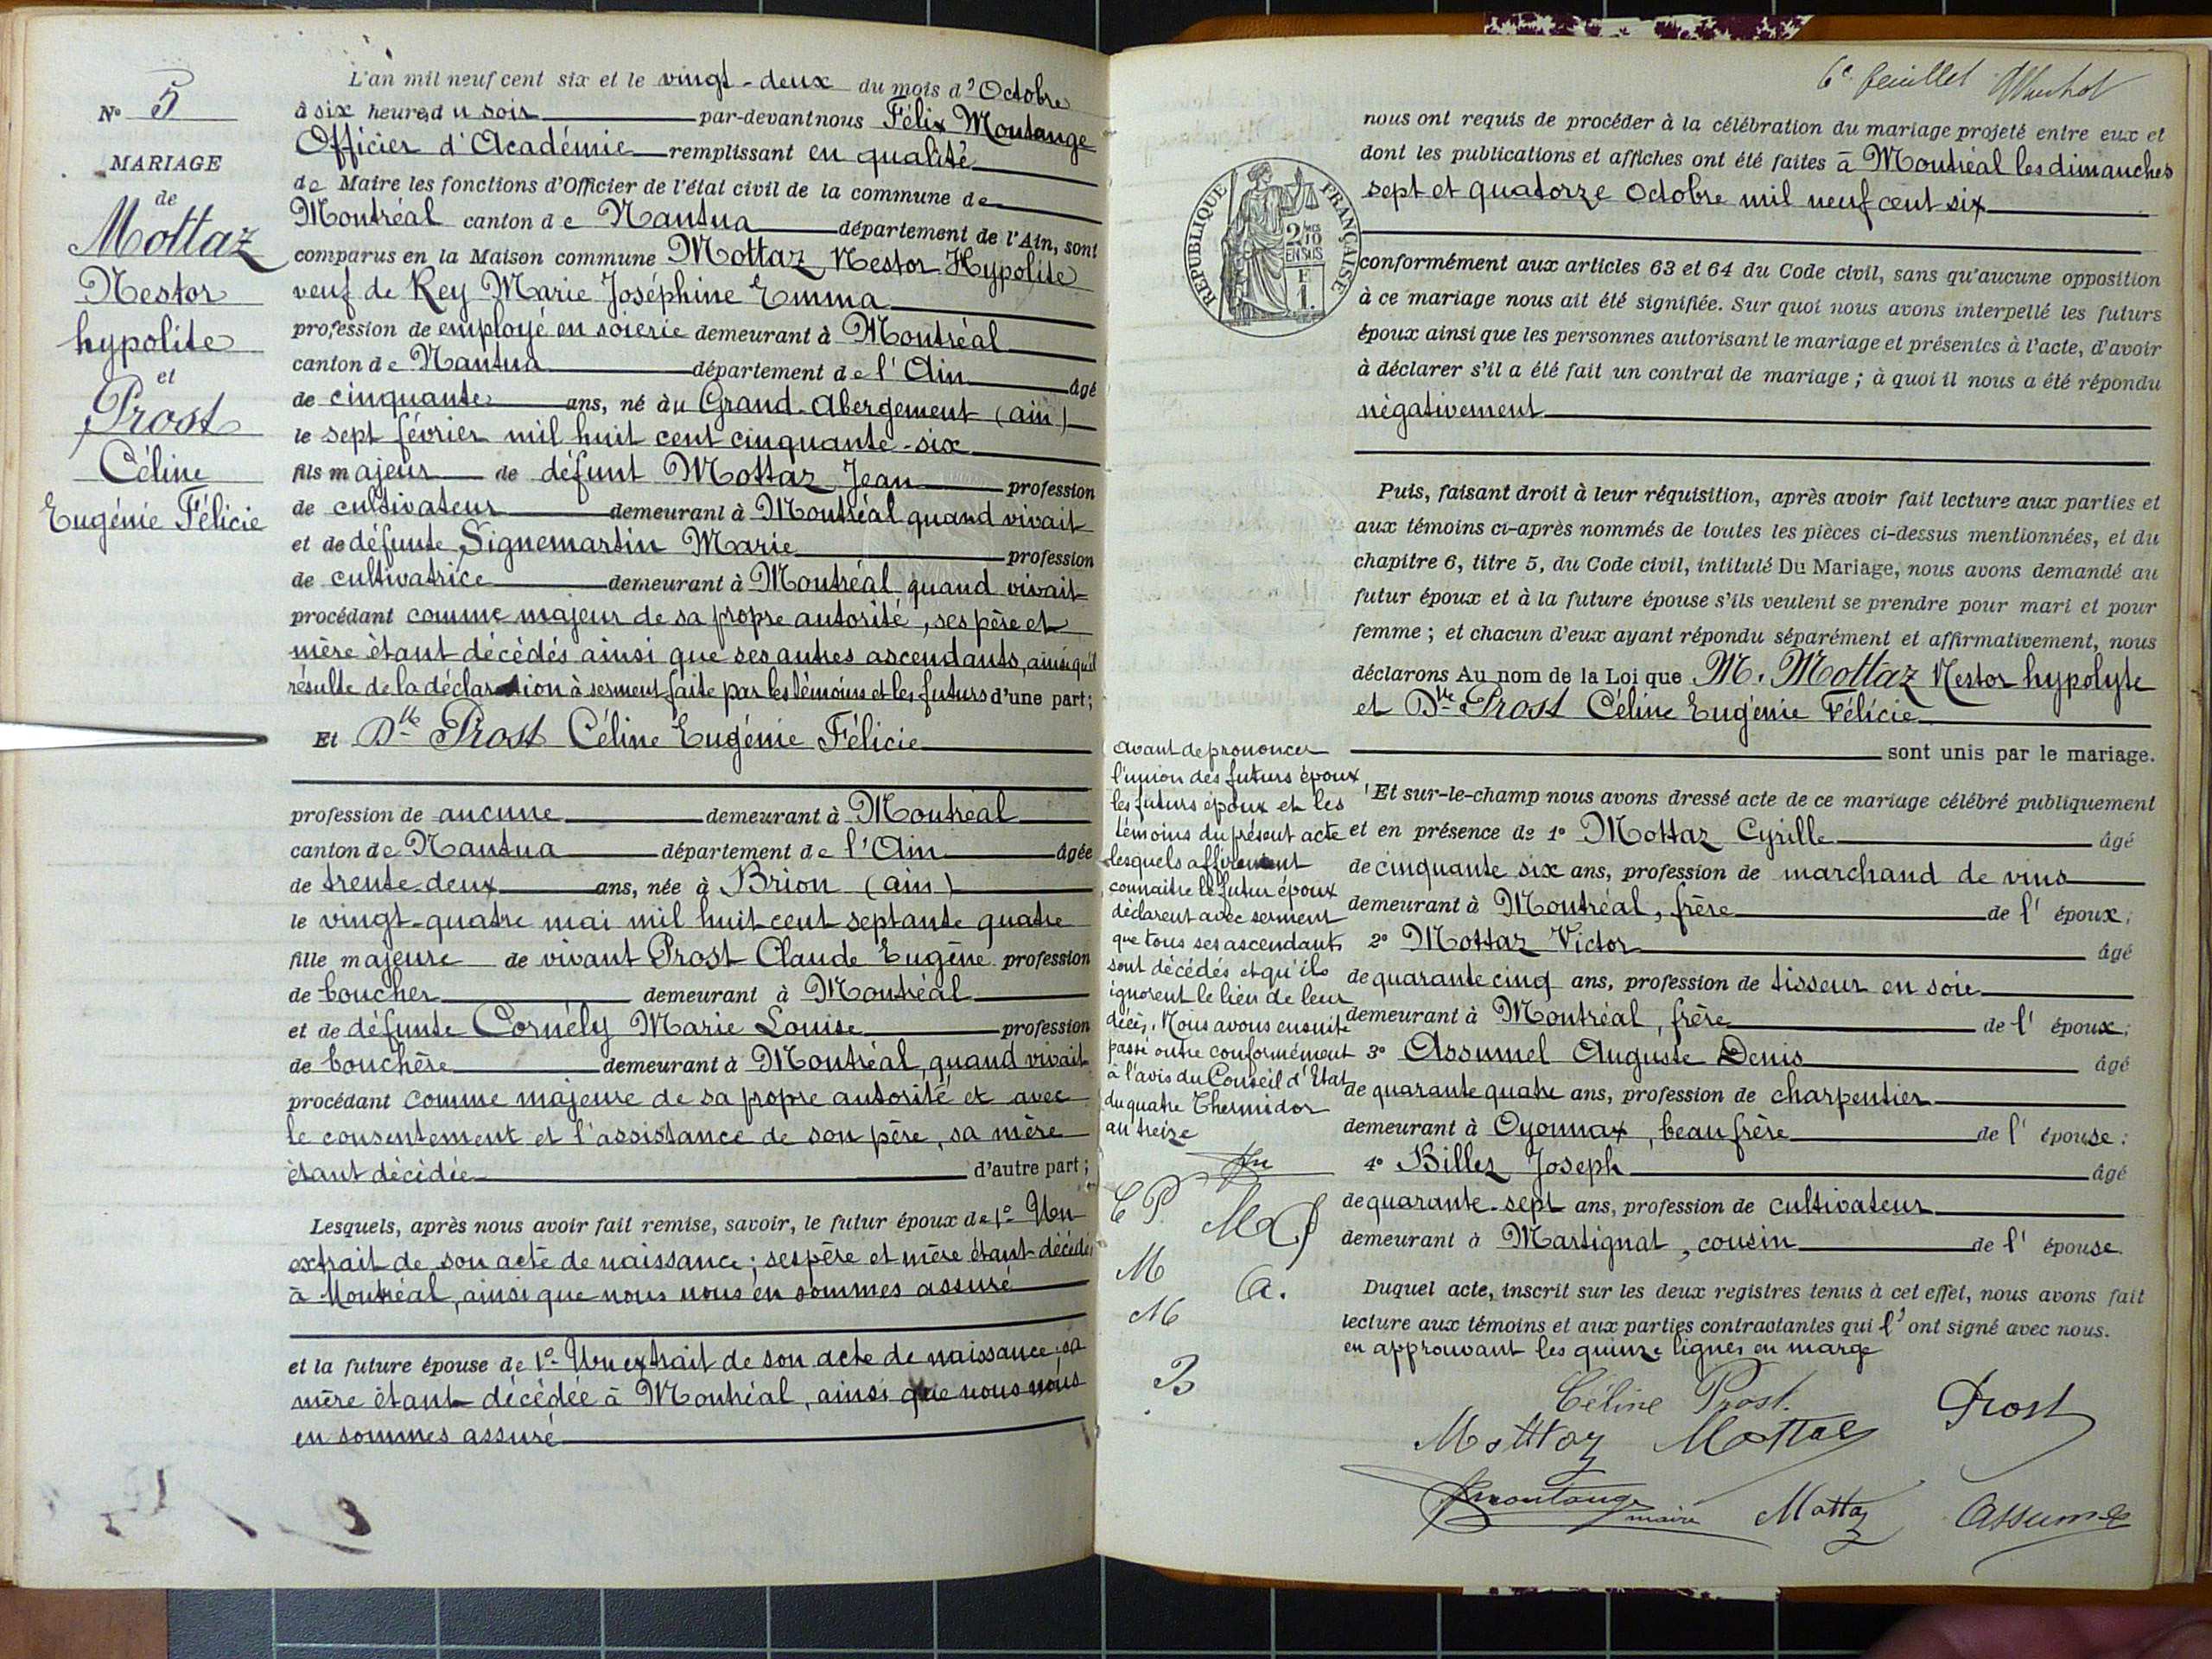 N° 5
MARIAGE
de
Mottaz
Nestor
hypolite
et
Prost
Céline
Eugénie Félicie
L'an mil neuf cent six et le vingt-deux du mois d'Octobre
à six heures du soir par-devant nous Félix Montange
Officier d'Académie remplissant en qualité
de Maire les fonctions d'Officier de l'état civil de la commune de
Montréal canton de Nantua département de l'Ain, sont
comparus en la Maison commune Mottaz Nestor Hypolite
veuf de Rey Marie Joséphine Emma
profession de employé en soierie demeurant à Montréal
canton de Nantua département de l'Ain âgé
de cinquante ans, né au Grand-Abergement (ain)
le sept février mil huit cent cinquante-six
fils majeur de défunt Mottaz Jean profession
de cultivateur demeurant à Montréal quand vivait
et de défunte Signemartin Marie profession
de cultivatrice demeurant à Montréal quand vivait
procédant comme majeur de sa propre autorité, ses père et
mère étant décédés ainsi que ses autres ascendants, ainsi qu'il
résulte de la déclaration à serment faite par les témoins et les futurs d'une part;
Et Dlle Prost Céline Eugénie Félicie
profession de aucune demeurant à Montréal
canton de Nantua département de l'Ain âgée
de trente-deux ans, née à Brion (ain)
le vingt-quatre mai mil huit cent septante quatre
fille majeure de vivant Prost Claude Eugène profession
de boucher demeurant à Montréal
et de défunte Cornély Marie Louise profession
de bouchère demeurant à Montréal, quand vivait
procédant comme majeure de sa propre autorité et avec
le consentement et l'assistance de son père, sa mère
étant décédée d'autre part;
Lesquels, après nous avoir fait remise, savoir, le futur époux de 1° Un
extrait de son acte de naissance; ses père et mère étant décédés
à Montréal, ainsi que nous nous en sommes assuré
et la future épouse de 1° Un extrait de son acte de naissance; sa
mère étant décédée à Montréal, ainsi que nous nous
en sommes assuré
6e feuillet
nous ont requis de procéder à la célébration du mariage projeté entre eux et
dont les publications et affiches ont été faites à Montréal les dimanches
sept et quatorze Octobre mil neuf cent six
RÉPUBLIQUE FRANÇAISE
2/10
EN SUS
F
1.
conformément aux articles 63 et 64 du Code civil, sans qu'aucune opposition
à ce mariage nous ait été signifiée. Sur quoi nous avons interpellé les futurs
époux ainsi que les personnes autorisant le mariage et présentes à l'acte, d'avoir
à déclarer s'il a été fait un contrat de mariage; à quoi il nous a été répondu
négativement
Puis, faisant droit à leur réquisition, après avoir fait lecture aux parties et
aux témoins ci-après nommés de toutes les pièces ci-dessus mentionnées, et du
chapitre 6, titre 5, du Code civil, intitulé Du Mariage, nous avons demandé au
futur époux et à la future épouse s'ils veulent se prendre pour mari et pour
femme; et chacun d'eux ayant répondu séparément et affirmativement, nous
déclarons Au nom de la Loi que M. Mottaz Nestor hypolyte
et Dlle Prost Céline Eugénie Félicie
sont unis par le mariage.
Et sur-le-champ nous avons dressé acte de ce mariage célébré publiquement
et en présence de 1° Mottaz Cyrille âgé
de cinquante six ans, profession de marchand de vins
demeurant à Montréal, frère de l'époux;
2° Mottaz Victor âgé
de quarante cinq ans, profession de tisseur en soie
demeurant à Montréal, frère de l'époux;
3° Assumel Auguste Denis âgé
de quarante quatre ans, profession de charpentier
demeurant à Oyonnax, beau frère de l'épouse;
4° Billez Joseph âgé
de quarante-sept ans, profession de cultivateur
demeurant à Martignat, cousin de l'épouse.
Duquel acte, inscrit sur les deux registres tenus à cet effet, nous avons fait
lecture aux témoins et aux parties contractantes qui l'ont signé avec nous.
en approuvant les quinze lignes en marge
avant de prononcer
l'union des futurs époux
les futurs époux et les
témoins du présent acte
lesquels affirment
connaitre le futur époux
déclarent avec serment
que tous ses ascendants
sont décédés et qu'ils
ignorent le lieu de leur
décès. Nous avons ensuite
passé outre conformément
à l'avis du Conseil d'Etat
du quatre Thermidor
an treize
C P.
M
A.
M
B
Céline Prost.
Prost
Mottaz Mottaz
Fmontange
maire
Mottaz
Assumel